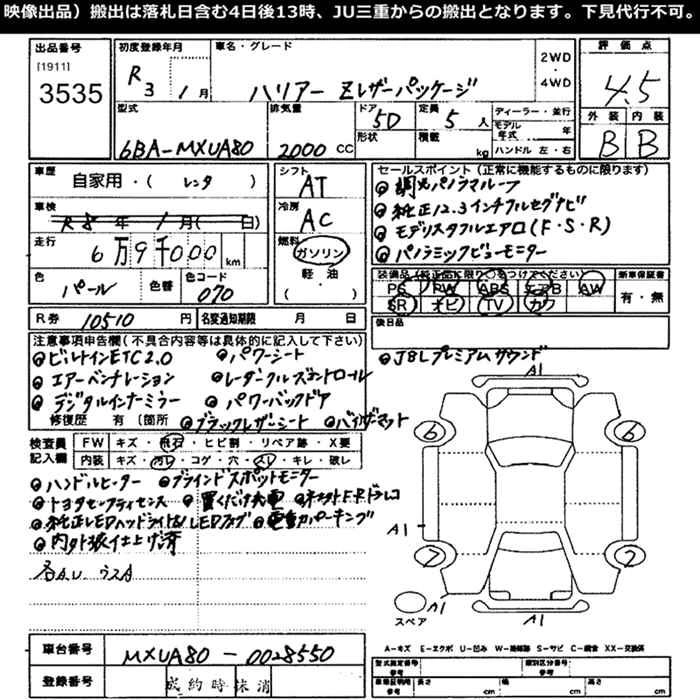 映像出品）搬出は落札日含む4日後13時、JU三重からの搬出となります。下見代行不可。
出品番号
[1911]
3535
初度登録年月
R3 1月
車名・グレード
ハリアー Zレザーパッケージ
2WD
・
4WD
評価点
4.5
外装 内装
B B
型式
6BA-MXUA80
排気量
2000 CC
ドア
5D
形状
定員
5 人
積載
kg
ディーラー・並行
モデル年式 年
ハンドル 左・右
車歴
自家用・( レンタ )
車検
R8年 1月( 日)
走行
6万9千000 km
色
パール
色替
色コード
070
シフト
AT
冷房
AC
燃料
ガソリン
軽・油
( )
セールスポイント（正常に機能するものに限ります）
調光パノラマルーフ
純正12.3インチフルセグナビ
モデリスタフルエアロ(F・S・R)
パノラミックビューモニター
装備品（純正品に限り○をつけてください）
PS PW ABS エアB AW
SR ナビ TV カワ
新車保証書
有・無
R券 10510 円
名変通知期限 月 日
後日品
注意事項申告欄(不具合内容等は具体的に記入して下さい)
ビルトインETC2.0 パワーシート
エアーベンチレーション レーダークルーズコントロール
デジタルインナーミラー パワーバックドア
修復歴 有 〔箇所 ブラックレザーシート バイザーマット
JBLプレミアムサウンド
検査員記入欄
FW キズ・飛石・ヒビ割・リペア跡・X要
内装 キズ・汚レ・コゲ・穴・スレ・キレ・破レ
ハンドルヒーター ブラインドスポットモニター
トヨタセーフティセンス 置くだけ充電 前後FRドラレコ
純正LEDヘッドライト&LEDフォグ 電動パーキング
内外装仕上げ済
各AU ウスA
A1
6 6
A1
7 7
A1
A1
スペア
A-キズ E-エクボ U-凹み W-補修跡 S-サビ C-腐食 XX-交換済
車台番号
MXUA80-0028550
登録番号
成約時抹消
型式指定番号
類別区分番号
参考
長さ cm
幅 cm
高さ cm